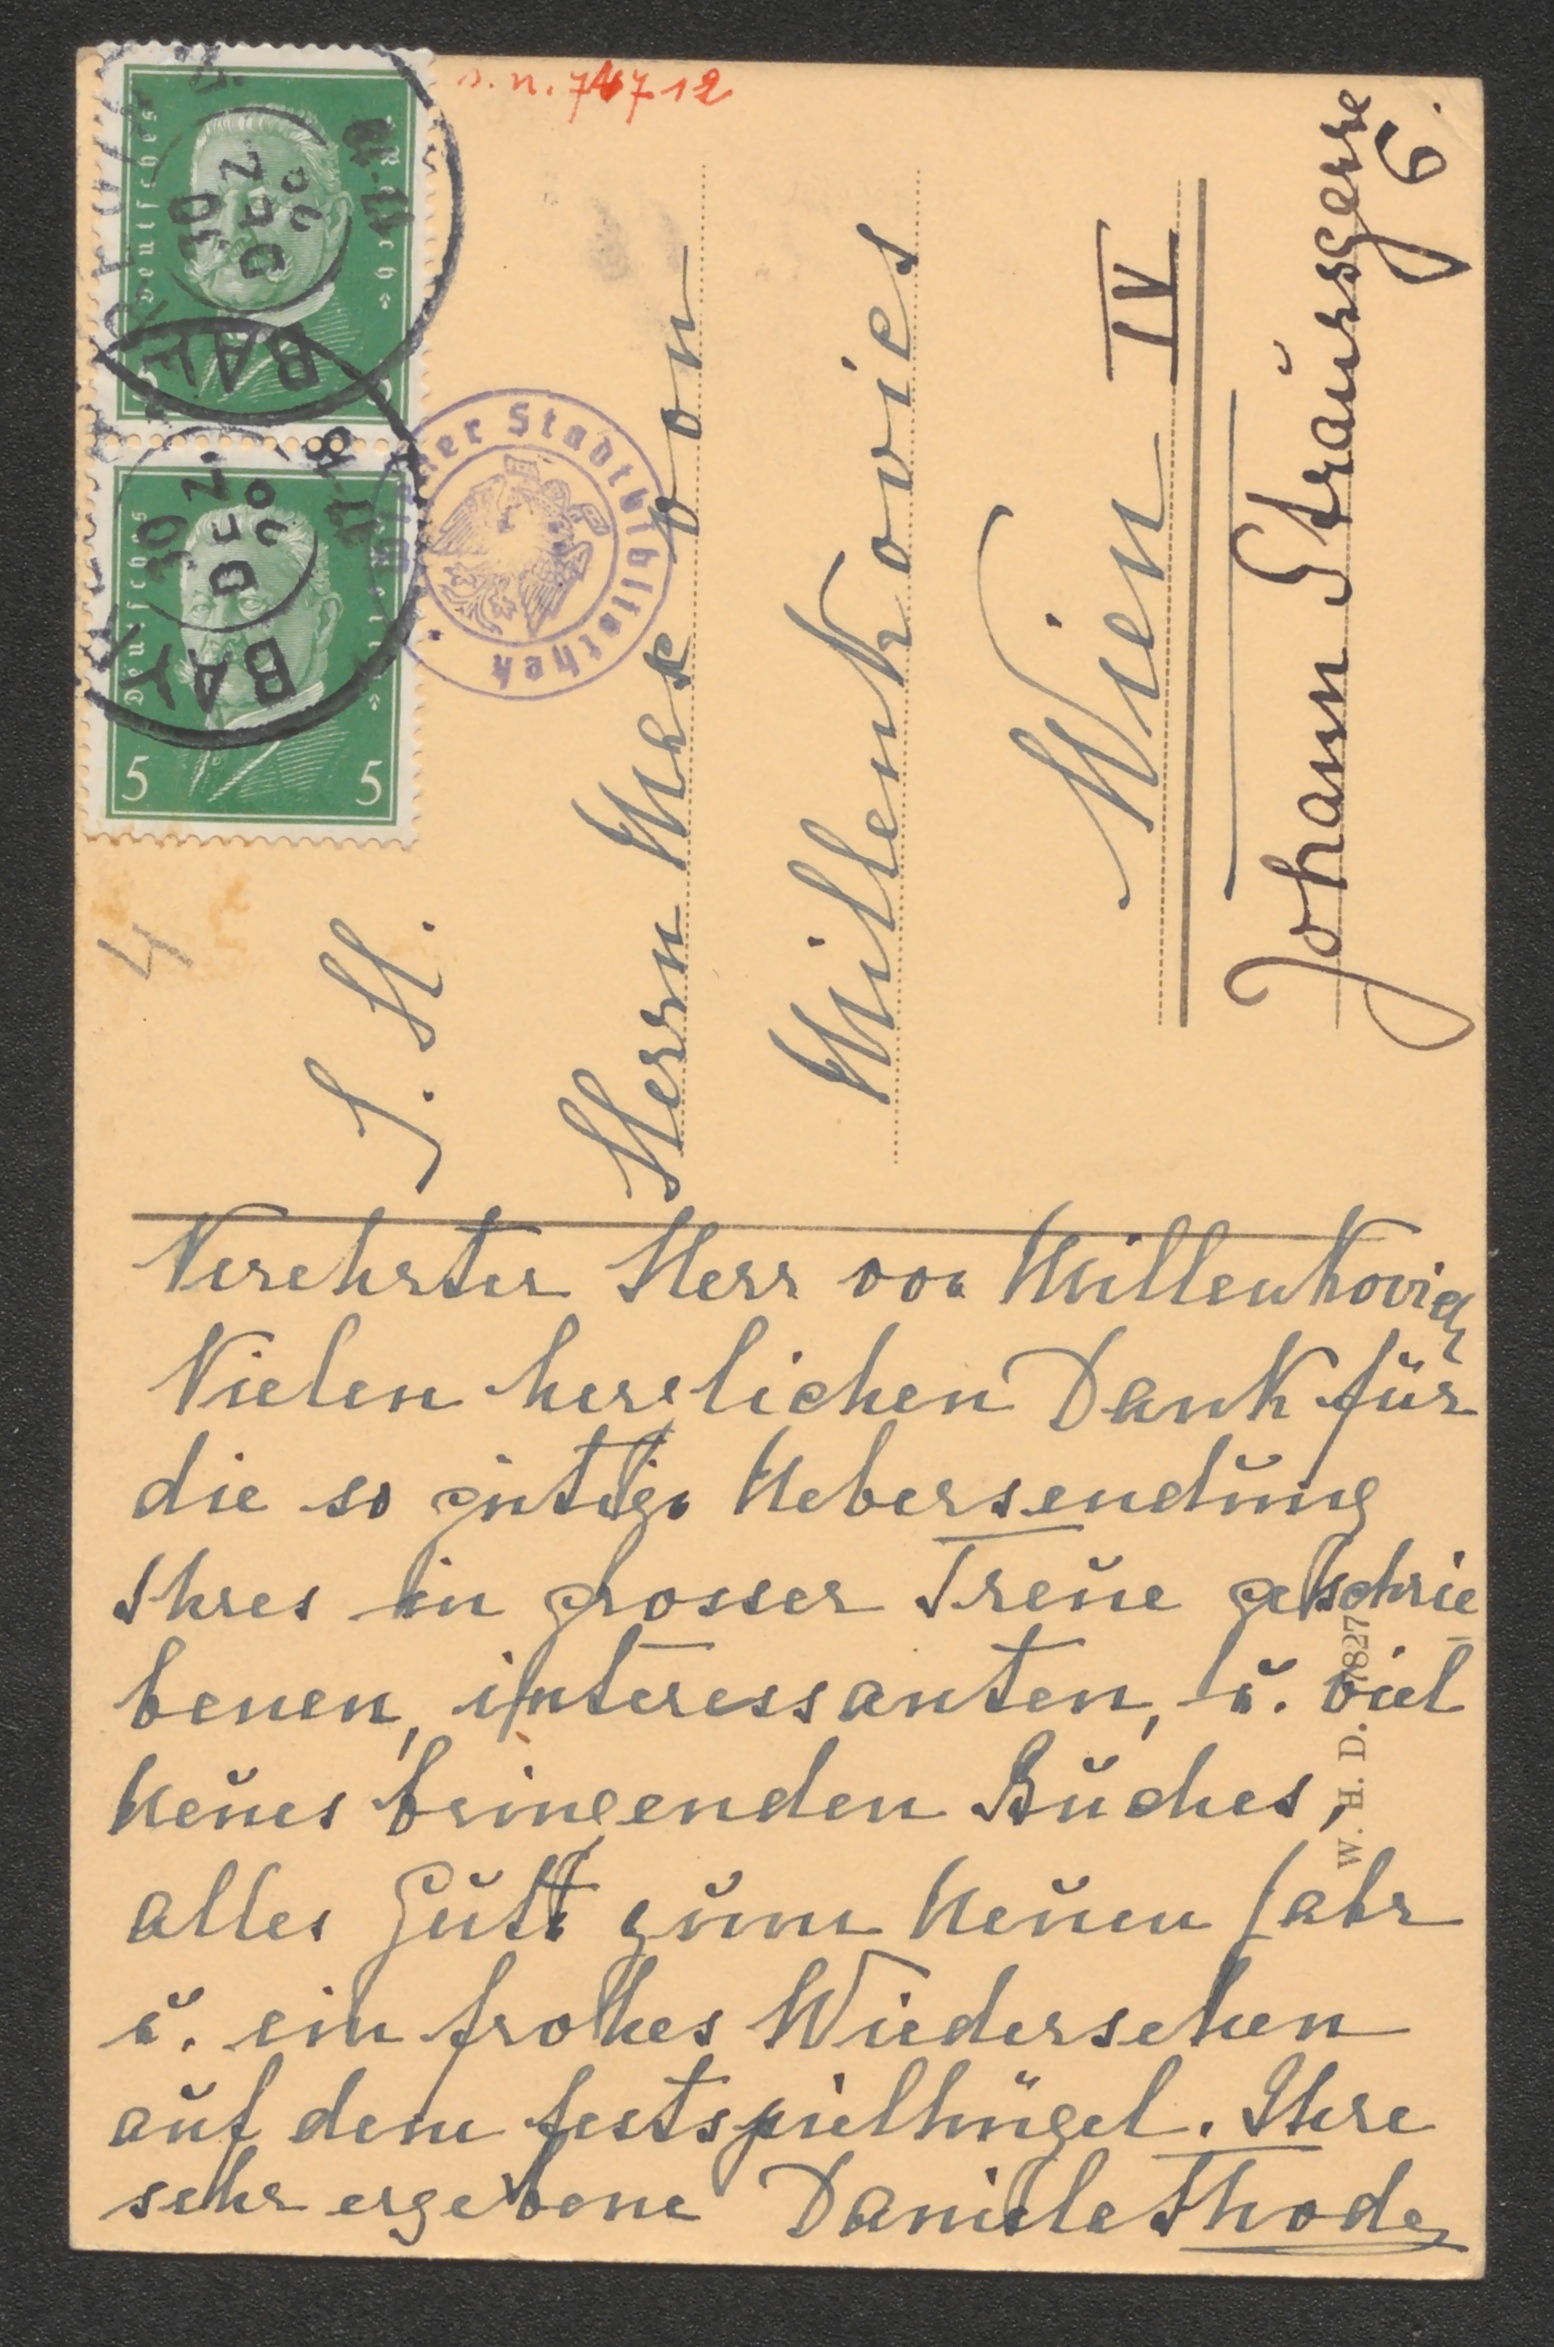 s. n. 74712
Deutsches Reich
30 DEZ 30
11-12
BAY
Deutsches Reich
5 5
30 DEZ 30
BAY
Wiener Stadtbibliothek
4
S. H.
Herrn Max von
Millenkovics
Wien IV
Johann Straussgasse
6.
Verehrter Herr von Millenkovich
Vielen herzlichen Dank für
die so gütige Uebersendung
Ihres in grosser Treue geschrie
benen, interessanten, u. viel
Neues bringenden Buches,
alles Gute zum Neuen Jahr
u. ein frohes Wiedersehen
auf dem Festspielhügel. Ihre
sehr ergebene Daniela Thode
W. H. D. 7827